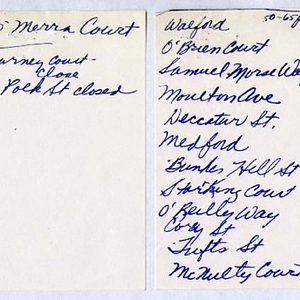 Merra Court
Court-
Close
Polk St closed
50-65
Walford
O'Brien Court
Samuel Morse Way
Moulton Ave
Deccatur St.
Medford
Bunker Hill St
Starking Court
O'Reilly Way
Cory St
Tufts St
McNulty Court